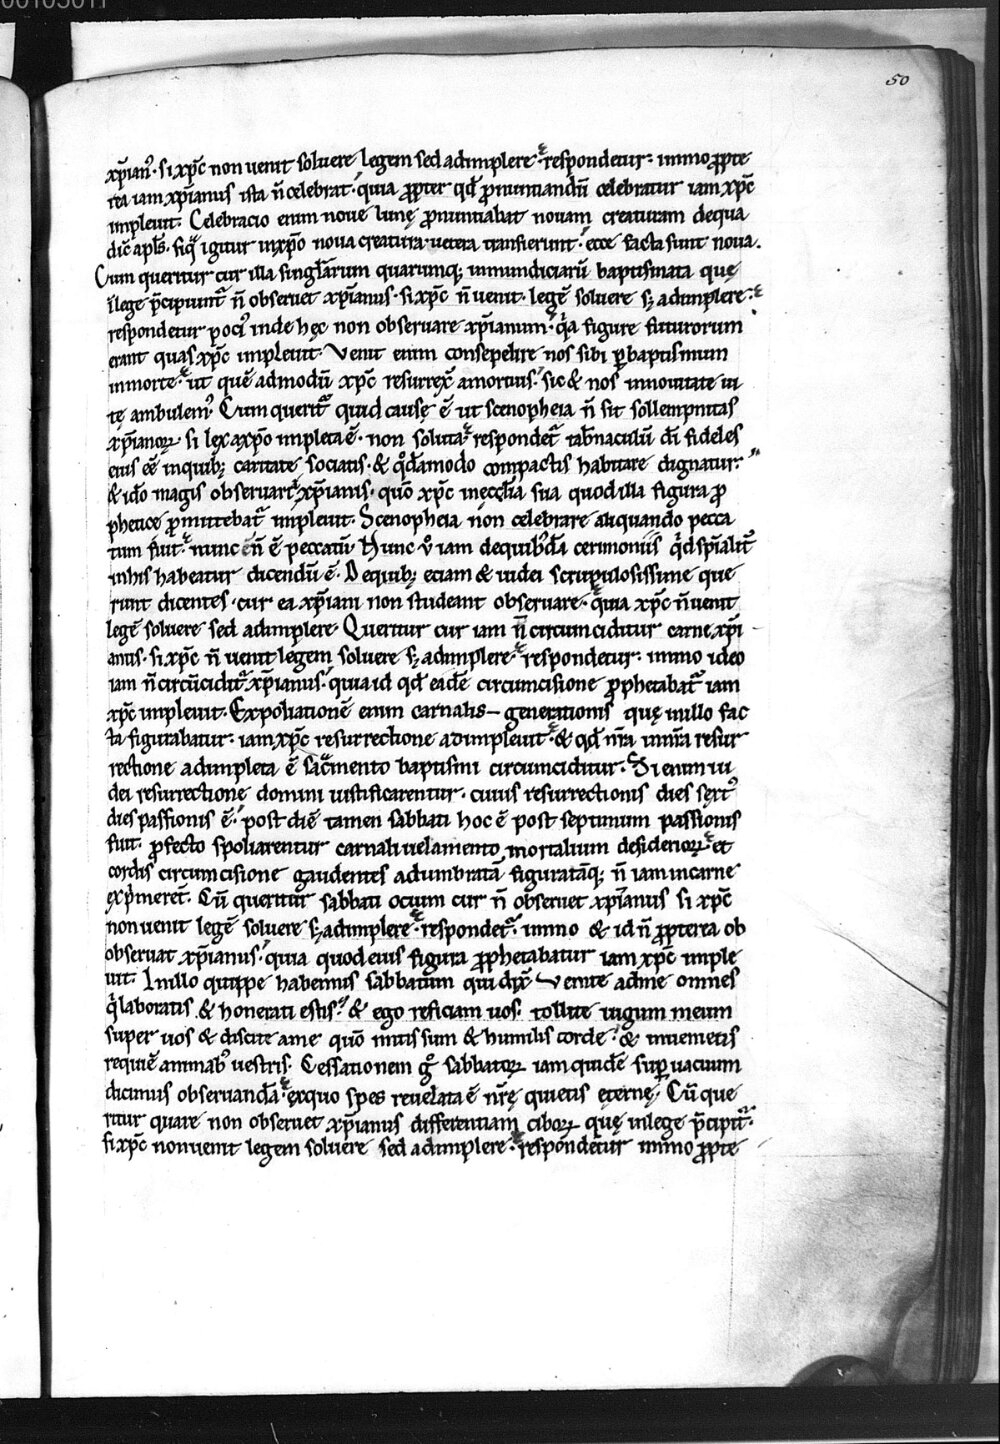 00103011
50
xp̄ianꝰ· si xp̄c non uenit soluere legem sed adimplere· respondetur· immo ꝓpte
rea iam xp̄ianus ista n̄ celebrat· quia ꝓpter qd̄ ꝓnuntiandū celebratur iam xp̄c
impleuit· Celebracio enim noue lunę ꝓnuntiabat nouam creaturam de qua
dic̄ apl̄s· si qͣ igitur in xp̄o noua creatura· uetera transierunt· ecce facta sunt noua.
Cum queritur cur illa singl̄arum quarumq; inmundiciarū baptismata quę
ī lege p̄cipiunt̃ n̄ obseruet xp̄ianus· si xp̄c n̄ uenit· legē soluere sꝫ adimplere·
respondetur pociꝰ inde hęc non obseruare xp̄ianum· qͥa figure futurorum
erant quas xp̄c impleuit· Venit enim consepelire nos sibi ꝑ baptismum
in morte· ut quē admodū xp̄c resurrex̄ a mortuis· sic & nos in nouitate ui
tę ambulemꝰ Cum querit̃ quid causę ē ut scenopheia n̄ sit sollempnitas
xp̄ianoꝝ· si lex a xp̄o impleta ē· non soluta· respondet̃ tab̄naculū dī fideles
eius eē in quibꝫ caritate sociatis· & qͦdāmodo compactis habitare dignatur·
& id̄o magis obseruari· xp̄ianis· qūo xp̄c in ecc̄lia sua quod illa figura ꝓ
phetice ꝓmittebat̃ impleuit· Scenopheia non celebrare aliquando pecca
tum fuit· nunc n̄ ē peccatū Hunc ů iam de quibꝰdā cerimoniis qͥd sp̄ialit̃
in his habeatur dicendū ē· De quibꝫ eciam & iudei scrupulosissime que
runt dicentes· cur ea xp̄iani non studeant obseruare· quia xp̄c n̄ uenit
legē soluere sed adimplere Queritur cur iam n̄ circumciditur carne xp̄i
anus· si xp̄c n̄ uenit legem soluere sꝫ adimplere· respondetur· immo ideo
iam n̄ circūcidit̃ xp̄ianus· quia id qd̄ eadē circumcisione ꝓphetabat̃ iam
xp̄c impleuit· Expoliationē enim carnalis generationis quę in illo fac
ta figurabatur· iam xp̄c resurrectione adimpleuit· & qd̄ nr̄a in nr̄a resur
rectione adimpleta ē sac̃mento baptismi circumciditur· Si enim iu
dei resurrectione domini iustificarentur· cuius resurrectionis dies sextꝰ
dies passionis ē· post diē tamen sabbati hoc ē post septimum passionis
fuit· ꝓfecto spoliarentur carnali uelamento mortalium desiderioꝝ· et
cordis circumcisione gaudentes adumbratā figuratāq; n̄ iam in carne
exp̄meret̄· Cū queritur sabbati ocium cur n̄ obseruet xp̄ianus si xp̄c
non uenit legē soluere sꝫ adimplere· respondet̃· immo & id n̄ ꝓpterea ob
obseruat xp̄ianus· quia quod eius figura ꝓphetabatur iam xp̄c imple
uit· In illo quippe habemus sabbatum qui dix̄ Venite ad me omnes
qͥ laboratis & honerati estis· & ego reficiam uos· tollite iugum meum
super uos & discite a me qūo mitis sum & humilis corde· & inuenietis
requiē animabꝰ uestris· Cessationem gͦ sabbatoꝝ iam quidē suꝑuacuum
dicimus obseruandā· ex quo spes reuelata ē nr̄ę quietis ęternę· Cū que
ritur quare non obseruet xp̄ianus differentiam ciboꝝ quę in lege p̄cipit̃·
si xp̄c non uenit legem soluere sed adimplere· respondetur immo ꝓpte